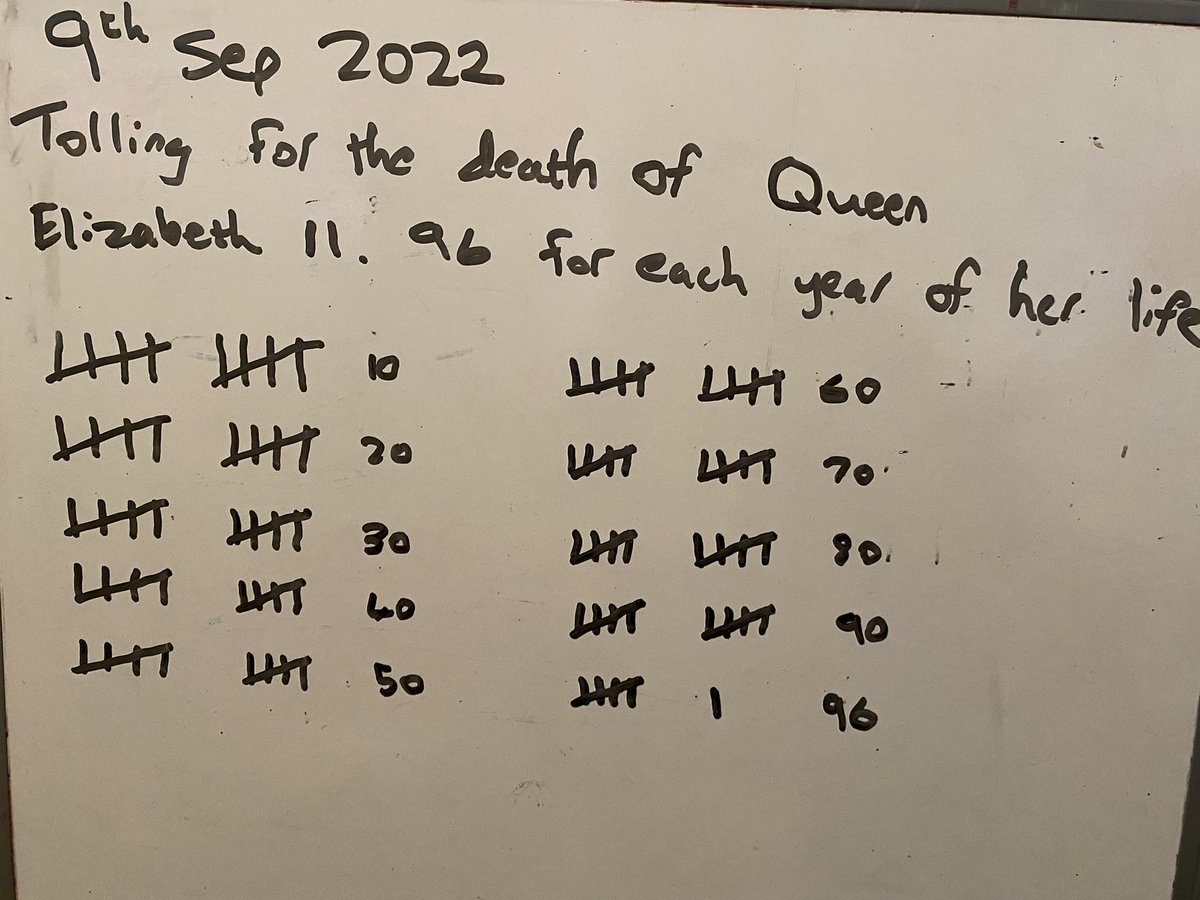 9th Sep 2022
Tolling for the death of Queen
Elizabeth II. 96 for each year of her life
10
20
30
40
50
60
70
80
90
1 96